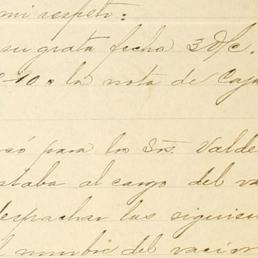 mi respeto:
su grata fecha 3 D/c.
la nota de Caja
para los Srs. Valde
estaba al cargo del va
despachar las siguien
el nombre del vacion